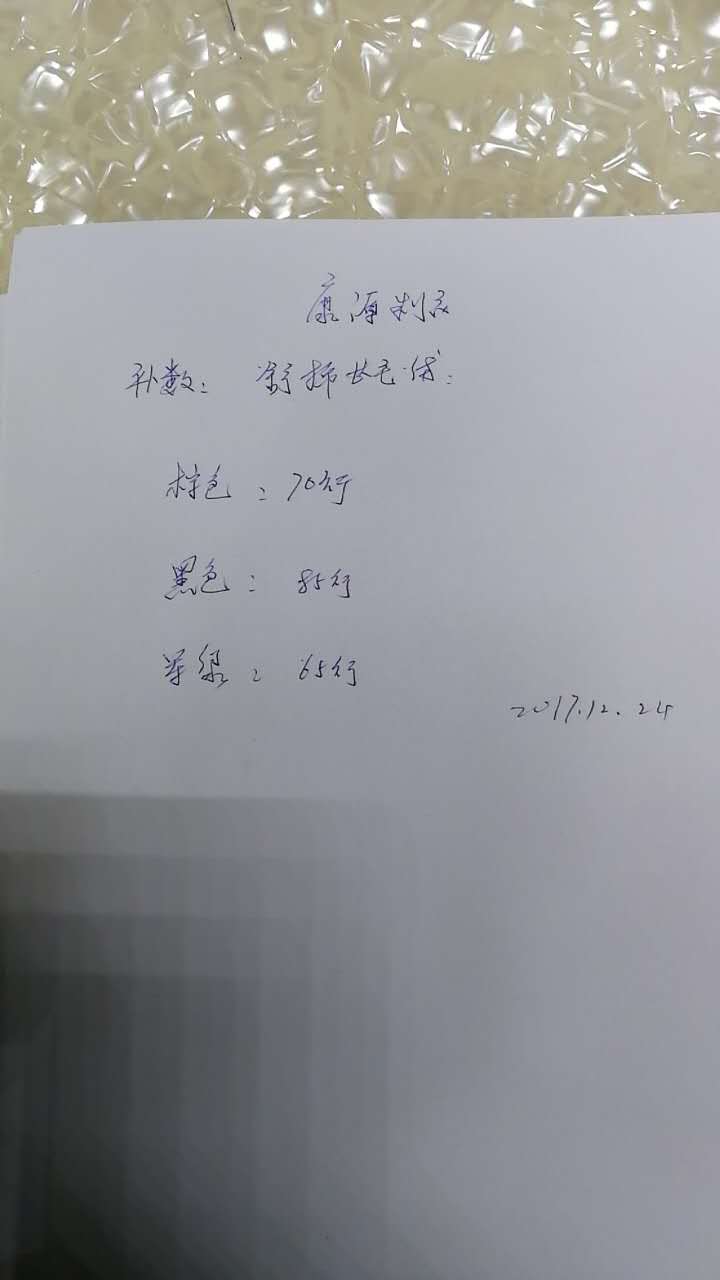 康源制衣
补数: 舒棉长毛绒:
棕色: 70行
黑色: 85行
军绿: 65行
2017.12.24